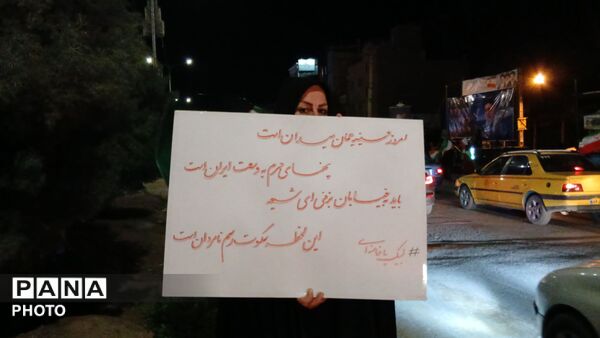 امروز حسینیه‌مان میدران است
پهنای حرم به وسعت ایران است
باید به خیابان بزنی ای شیعه
این لحظه سکوت رسم نامردان است
#لبیک_یا_خامنه_ای
PANA
PHOTO